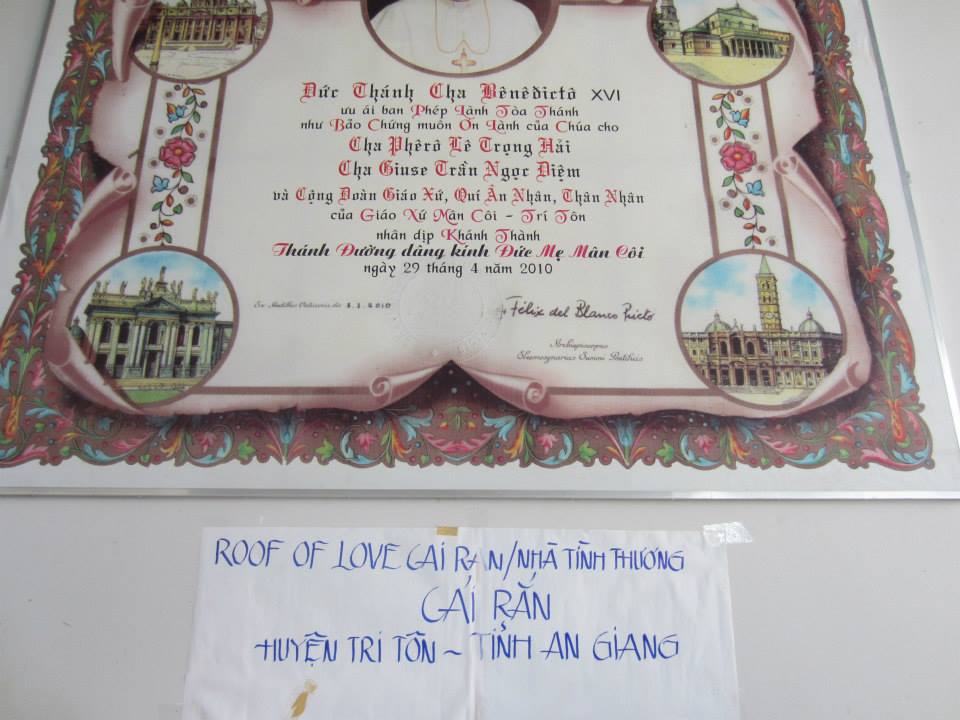 Đức Thánh Cha Bênêđictô XVI
ưu ái ban Phép Lành Tòa Thánh
như Bảo Chứng muôn Ơn Lành của Chúa cho
Cha Phêrô Lê Trọng Hải
Cha Giuse Trần Ngọc Diệm
và Cộng Đoàn Giáo Xứ, Quí Ân Nhân, Thân Nhân
của Giáo Xứ Mân Côi - Tri Tôn
nhân dịp Khánh Thành
Thánh Đường dâng kính Đức Mẹ Mân Côi
ngày 29 tháng 4 năm 2010
Ex Aedibus Vaticanis die
+ Félix del Blanco Prieto
Archiepiscopus
Eleemosynarius Summi Pontificis
ROOF OF LOVE CAI RAN/NHÀ TÌNH THƯƠNG
CẢI RẮN
HUYỆN TRI TÔN ~ TỈNH AN GIANG